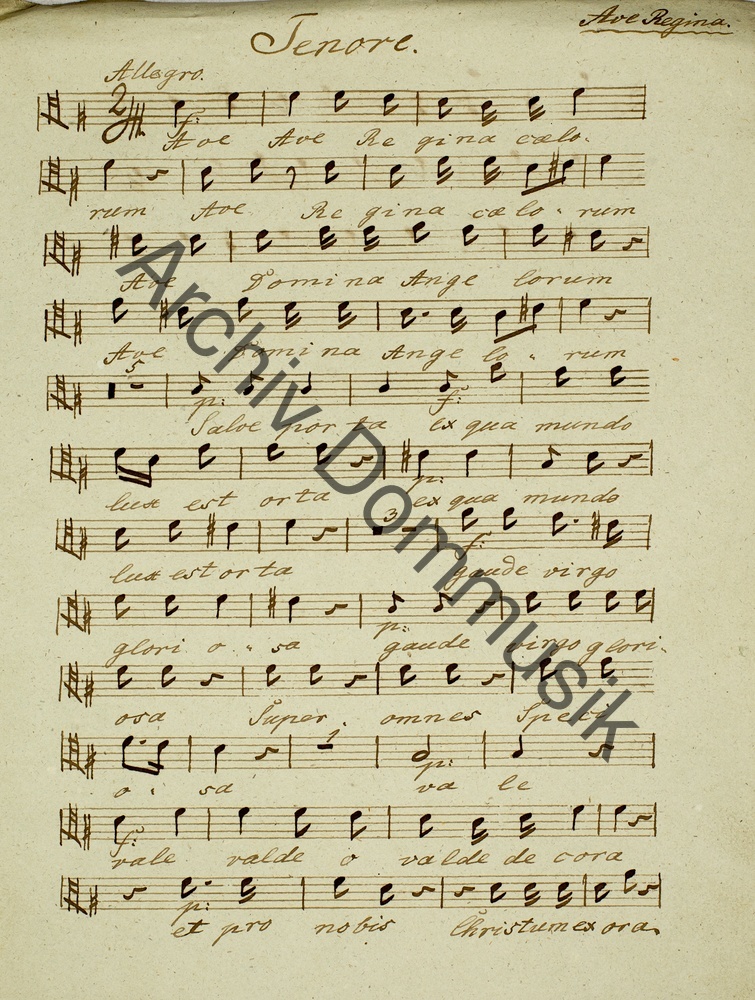 Ave Regina.
Tenore.
Allegro.
2/4
f:
Ave Ave Re gina cœlo.
rum Ave Re gina cœlo. rum
Ave Domina Ange lorum
Ave Domina Ange lo. rum
5
p: f:
Salve por ta ex qua mundo
p:
lux est orta ex qua mundo
3
f:
lux est orta gaude virgo
p:
glori o. sa gaude virgo glori.
osa Super. omnes Speci
1
p:
o. sa va le
f:
vale valde o valde de cora
p:
et pro nobis Christum ex ora.
Archiv Dommusik